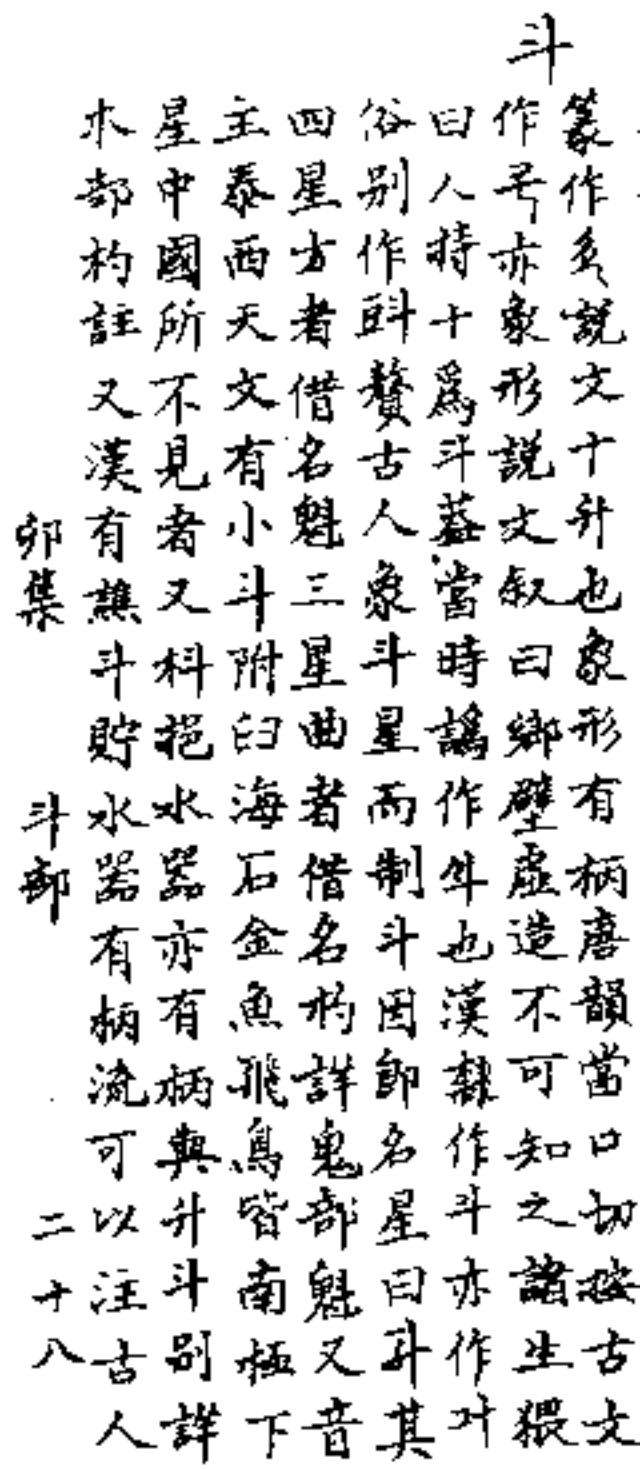 斗
篆作㪷說文十升也象形有柄唐韻當口切按古文
作号亦象形說文叙曰鄉壁虛造不可知之諸生猥
曰人持十為斗葢當時譌作㪷也漢隸作斗亦作㪷
俗別作㪷贅古人象斗星而制斗因即名星曰斗其
四星方者借名魁三星曲者借名杓詳鬼部魁又音
主泰西天文有小斗附臼海石金魚飛鳥皆南極下
星中國所不見者又枓挹水器亦有柄與升斗別詳
木部杓註又漢有鐎斗貯水器有柄流可以注古人
卯集 斗部 二十八